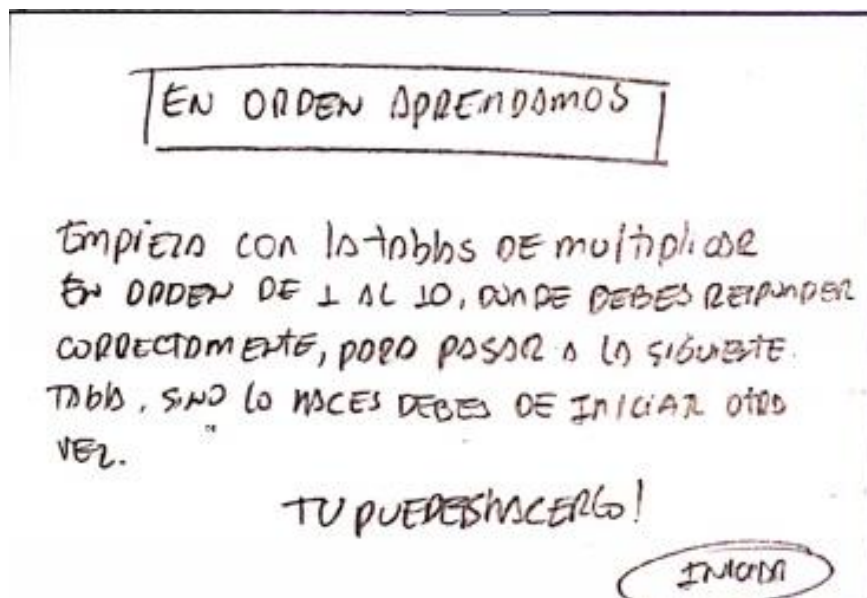 EN ORDEN APRENDAMOS
Empieza con la tablas DE multiplicar
EN ORDEN DE 1 AL 10, DONDE DEBES RESPONDER
CORRECTAMENTE, PARA PASAR A LA SIGUIENTE
TABLA, SINO LO HACES DEBES DE INICIAR OTRA
VEZ.
TU PUEDES HACERLO!
INICIAR